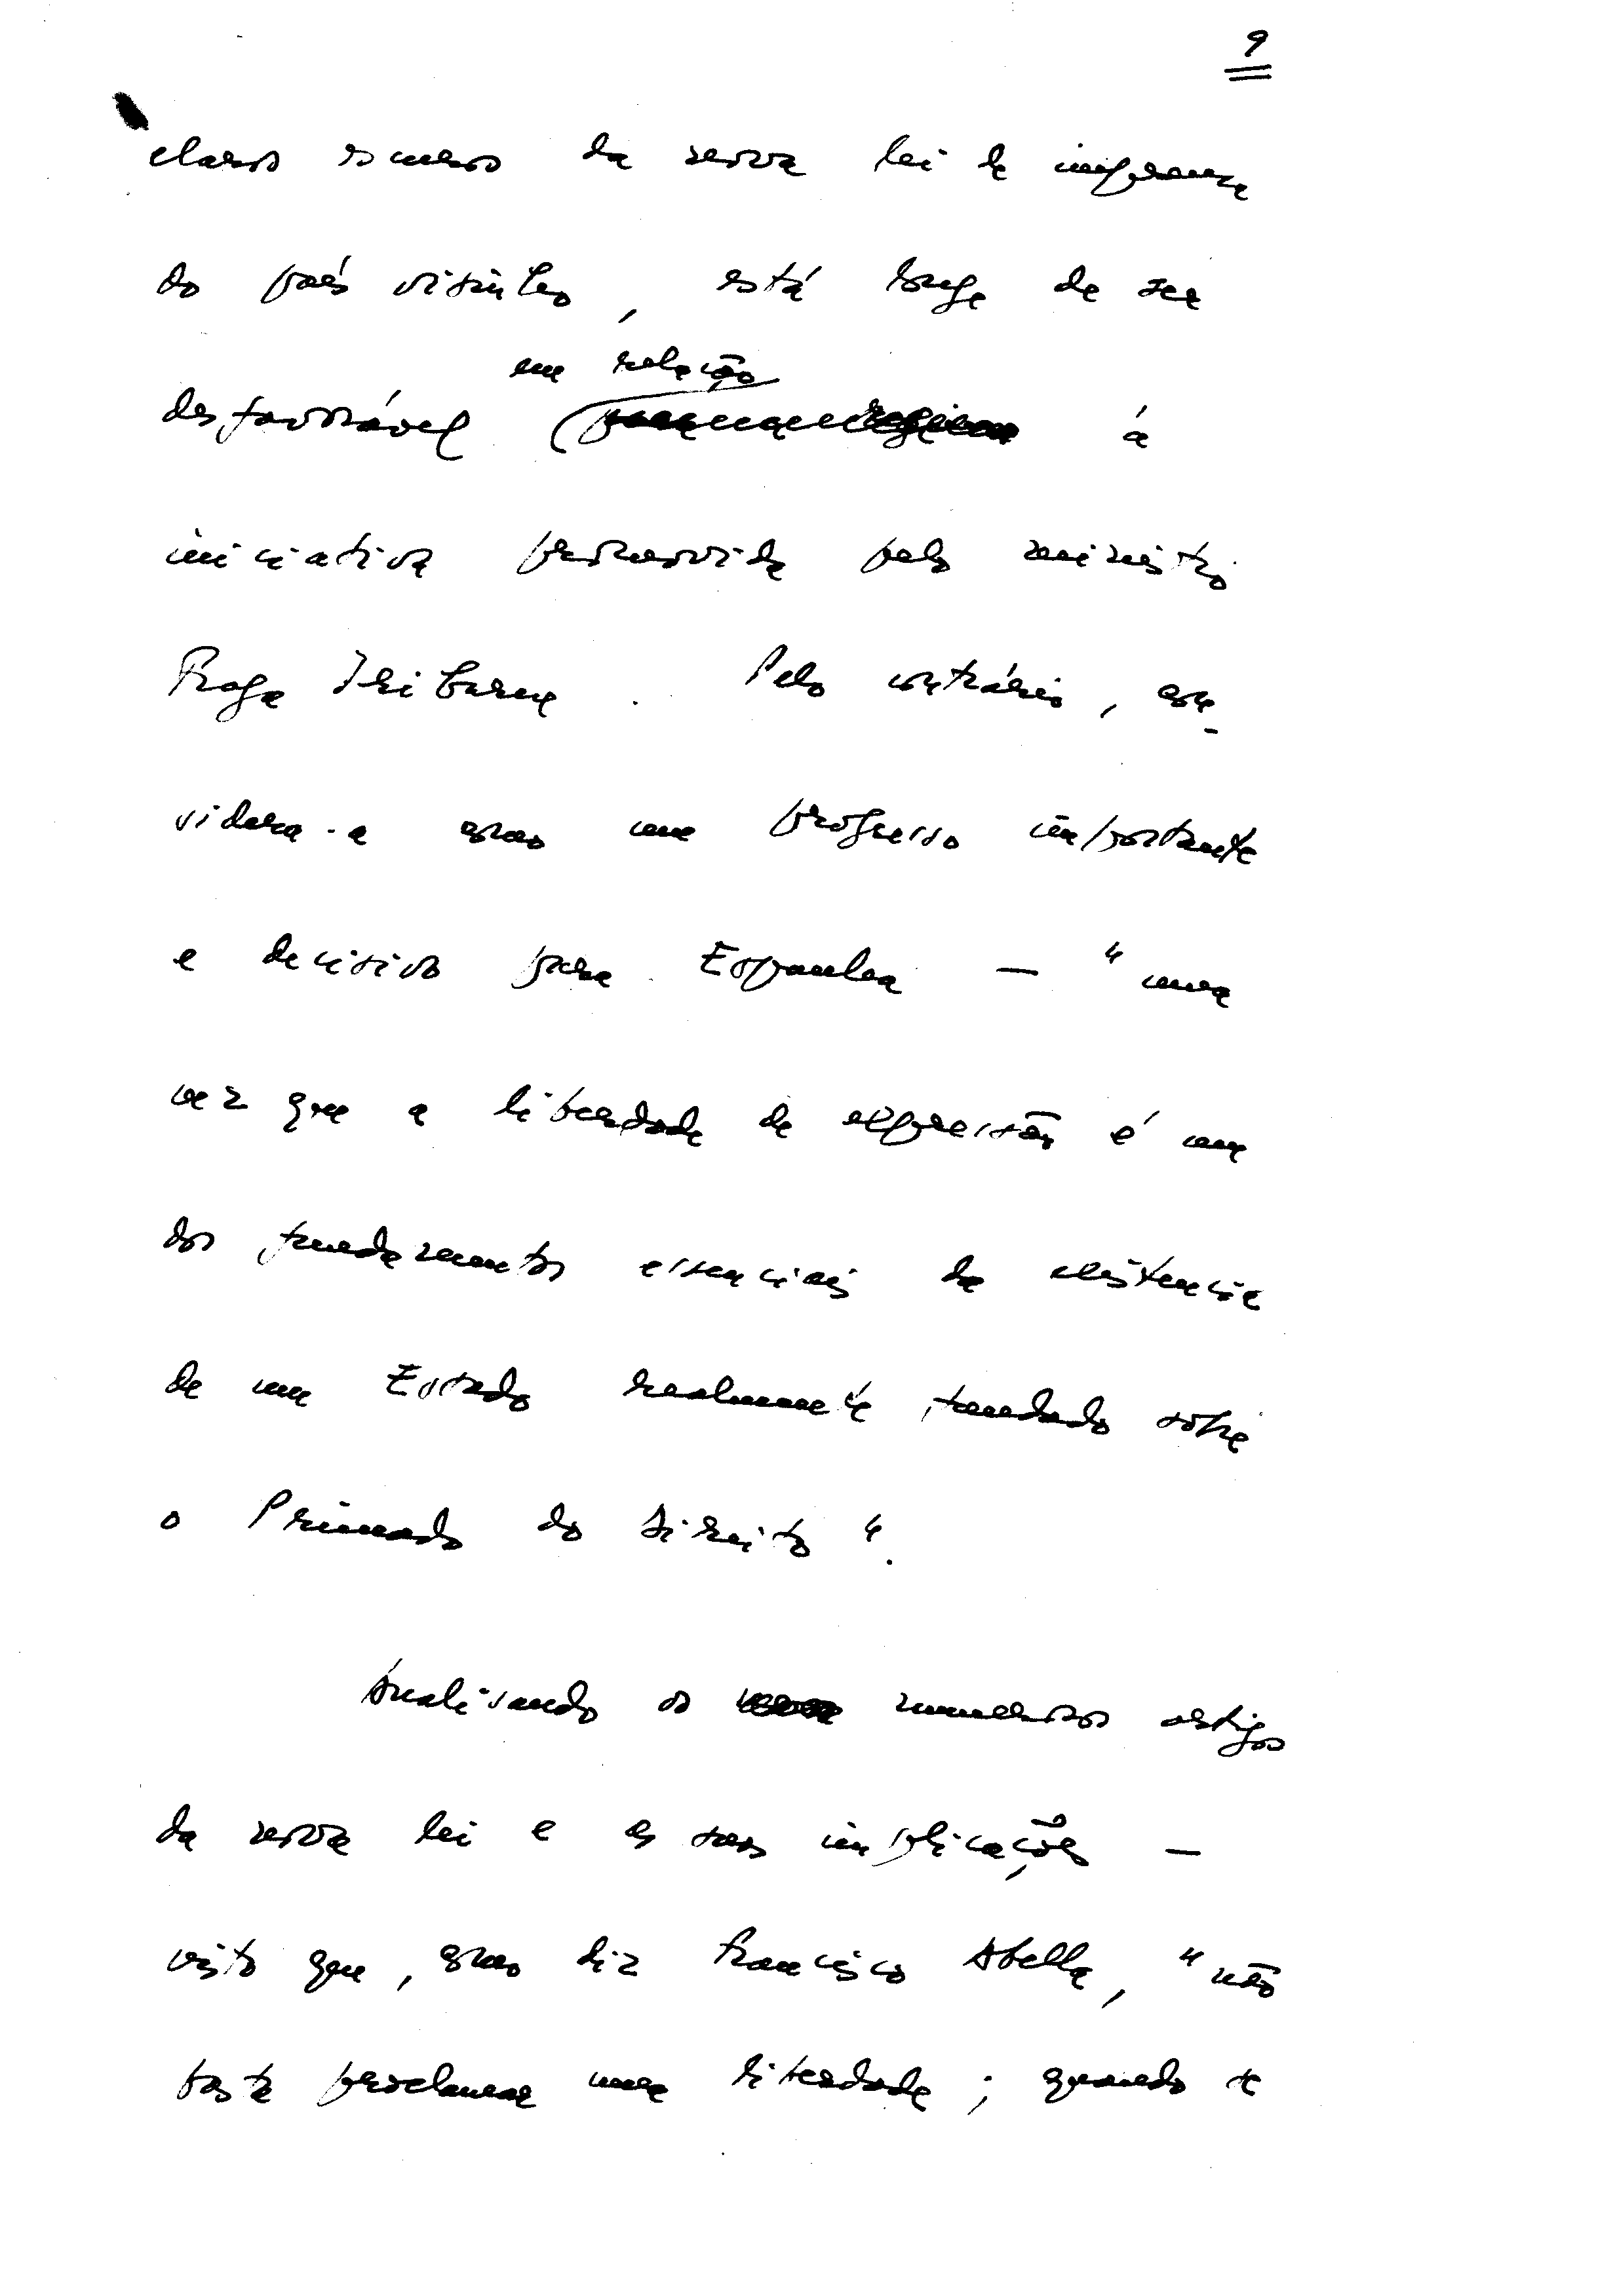 9
claro escuro da nova lei de imprensa
do país visinho, está longe de ser
em relação
desfavorável à
iniciativa promovida pelo ministro
Fraga Iribarne. Pelo contrário, con-
sidera-a como um progresso importante
e decisivo para Espanha — "uma
vez que a liberdade de expressão é um
dos fundamentos essenciais da existência
de um Estado realmente fundado sobre
o Primado do Direito".
Analisando os numerosos artigos
da nova lei e as suas implicações —
visto que, como diz Francisco Abella, "não
basta proclamar uma liberdade; quando se